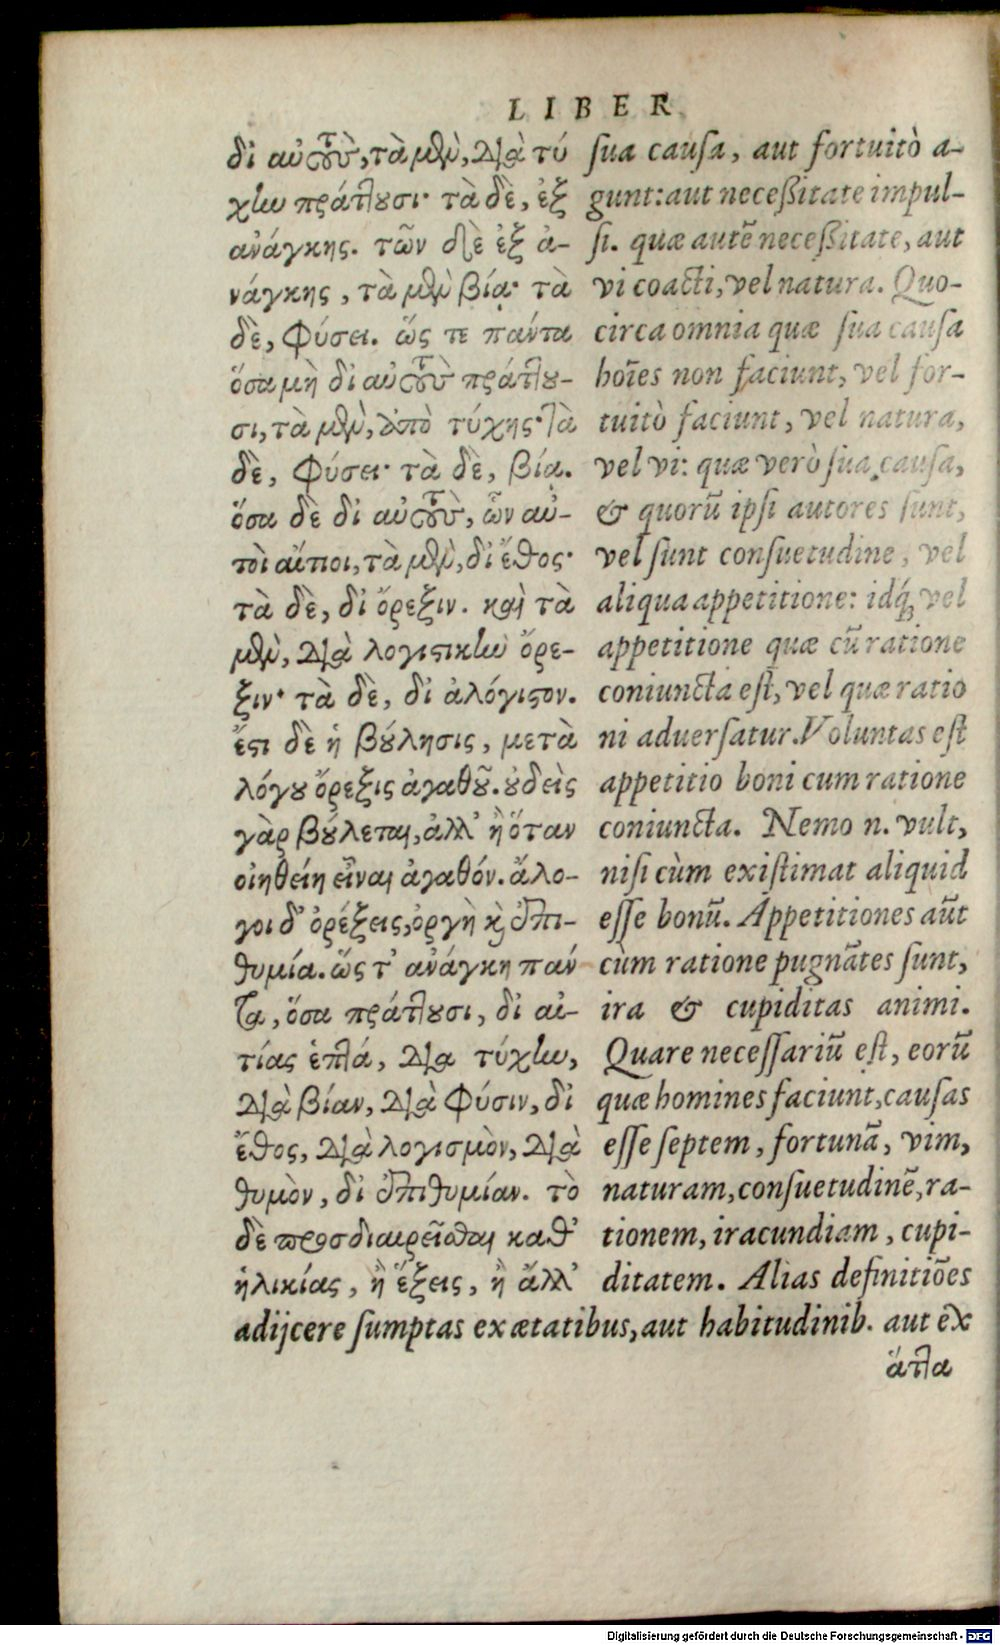 LIBER
δι' αὑτοὺς, τὰ μὲν, διὰ τύ
χην πράττουσι· τὰ δὲ, ἐξ
ἀνάγκης. τῶν δὲ ἐξ ἀ-
νάγκης, τὰ μὲν βίᾳ· τὰ
δὲ, φύσει. ὥς τε πάντα
ὅσα μὴ δι' αὑτοὺς πράττου-
σι, τὰ μὲν, ἀπὸ τύχης· τὰ
δὲ, φύσει· τὰ δὲ, βίᾳ.
ὅσα δὲ δι' αὑτοὺς, ὧν αὐ-
τοὶ αἴτιοι, τὰ μὲν, δι' ἔθος·
τὰ δὲ, δι' ὄρεξιν. καὶ τὰ
μὲν, διὰ λογιστικὴν ὄρε-
ξιν· τὰ δὲ, δι' ἀλόγιστον.
ἔστι δὲ ἡ βούλησις, μετὰ
λόγου ὄρεξις ἀγαθοῦ. οὐδεὶς
γὰρ βούλεται, ἀλλ' ἢ ὅταν
οἰηθείη εἶναι ἀγαθόν. ἄλο-
γοι δ' ὀρέξεις, ὀργὴ καὶ ἐπι-
θυμία. ὥς τ' ἀνάγκη πάν
τα, ὅσα πράττουσι, δι' αἰ-
τίας ἑπτά, δια τύχην,
διὰ βίαν, διὰ φύσιν, δι'
ἔθος, διὰ λογισμὸν, διὰ
θυμὸν, δι' ἐπιθυμίαν. τὸ
δὲ προσδιαιρεῖσθαι καθ'
ἡλικίας, ἢ ἕξεις, ἢ ἄλλ'
sua causa, aut fortuitò a-
gunt: aut necessitate impul-
si. quæ autẽ necessitate, aut
vi coacti, vel natura. Quo-
circa omnia quæ sua causa
hoĩes non faciunt, vel for-
tuitò faciunt, vel natura,
vel vi: quæ verò sua causa,
& quorũ ipsi autores sunt,
vel sunt consuetudine, vel
aliqua appetitione: idq́; vel
appetitione quæ cũ ratione
coniuncta est, vel quæ ratio
ni adversatur. Voluntas est
appetitio boni cum ratione
coniuncta. Nemo n. vult,
nisi cùm existimat aliquid
esse bonũ. Appetitiones aũt
cùm ratione pugnãtes sunt,
ira & cupiditas animi.
Quare necessariũ est, eorũ
quæ homines faciunt, causas
esse septem, fortunã, vim,
naturam, consuetudinẽ, ra-
tionem, iracundiam, cupi-
ditatem. Alias definitiões
adijcere sumptas ex ætatibus, aut habitudinib. aut ex
ἄττα
Digitalisierung gefördert durch die Deutsche Forschungsgemeinschaft - DFG